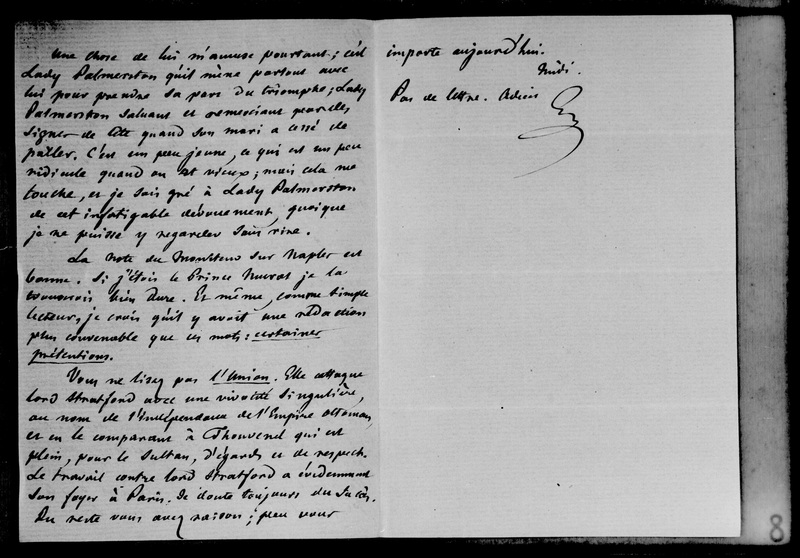 Une chose de lui m'amuse pourtant ; c'est
Lady Palmerston qu'il mène partout avec
lui pour prendre sa part du triomphe ; Lady
Palmerston saluant et remerciant par des
signes de tête quand son mari a cessé de
parler. C'est un peu jeune, ce qui est un peu
ridicule quand on est vieux ; mais cela me
touche, et je sais gré à Lady Palmerston
de cet infatigable dévouement, quoique
je ne puisse y regarder sans rire.
La note du Moniteur sur Naples est
bonne. Si j'étois le Prince Murat je la
trouverois bien dure. Et même, comme simple
lecteur, je crois qu'il y avait une rédaction
plus convenable que ces mots : certaines
prétentions.
Vous ne lisez pas l'Union. Elle attaque
lord Stratford avec une vivacité singulière,
au nom de l'indépendance de l'Empire ottoman,
et en le comparant à Thouvenel qui est
plein, pour le Sultan, d'égards et de respect.
Le travail contre lord Stratford a évidemment
son foyer à Paris. Je doute toujours du succès.
Du reste vous avez raison ; peu vous
importe aujourd'hui.
Midi.
Pas de lettre. Adieu
8